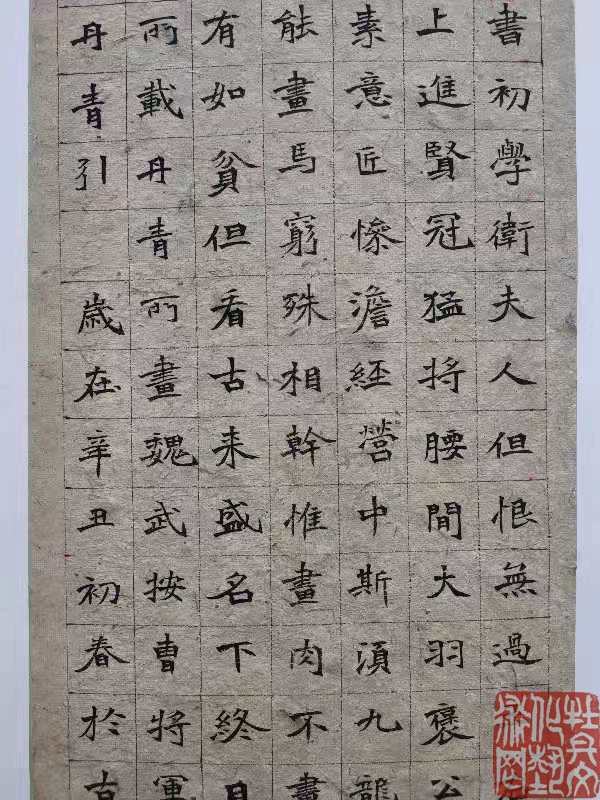 書初學衛夫人但恨無過
上進賢冠猛將腰間大羽褒公
素意匠慘澹經營中斯湏九龍
能畫馬窮殊相幹惟畫肉不畫
有如貧但看古来盛名下終日
所載丹青所畫魏武按曹將軍
丹青引 歳在辛丑初春於古